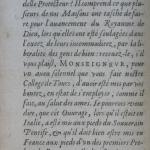 delle Protecteur! Il comprend ce que plu-
sieurs de nos Maisons ont tasché de fai-
re pour l'auancement du Royaume de
Dieu, lors qu'elles ont esté soulagées dans
l'excez de leurs incommoditez, par les
liberalitez des gens de bien: receuez-le, s'il
vous plaist, MONSEIGNEVR, pour
vn aueu solennel que vous fait nostre
College de Tours, d'auoir esté employé
au salut des ames. Ie pourrois vous
dire, que cet Ouurage, lors qu'il estoit en
Italie, a esté mis aux pieds du Souuerain
Pontife, & qu'il doit bien estre mis en
France aux pieds d'vn des premiers Pre-